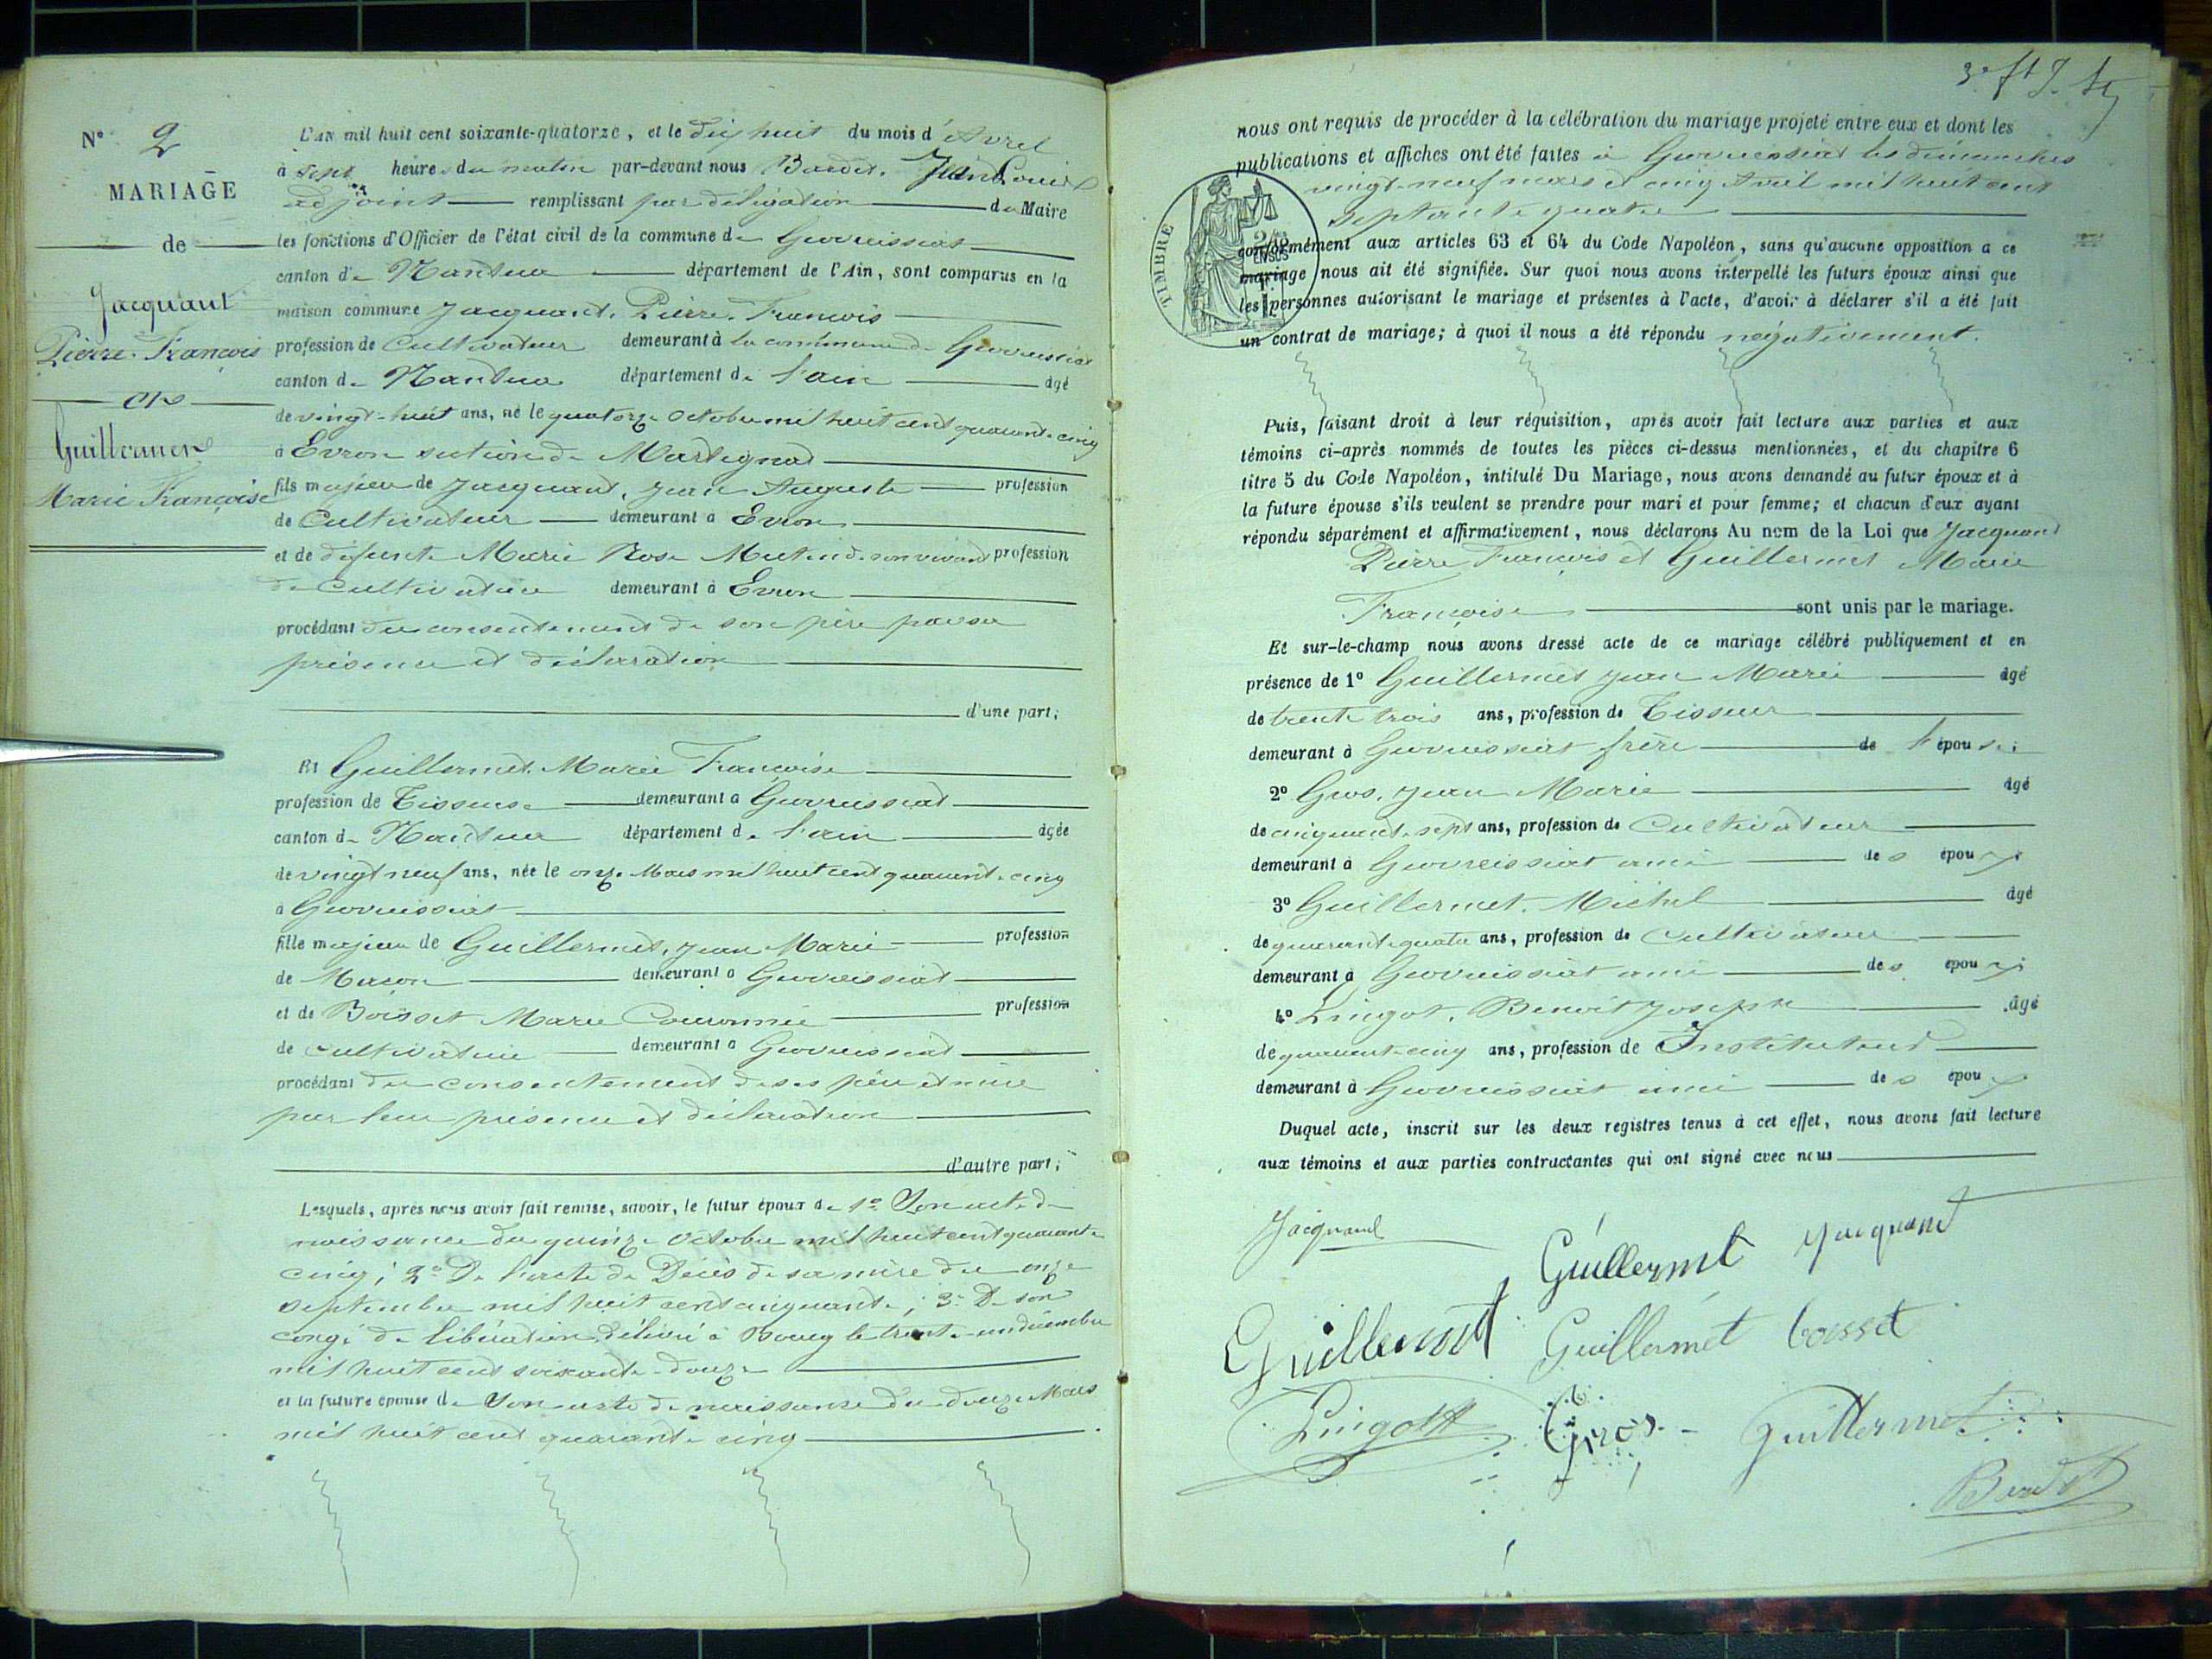 N° 2
MARIAGE
de
Jacquant
Pierre-François
et
Guillermet
Marie Françoise
L'an mil huit cent soixante-quatorze, et le dix huit du mois d'Avril
à sept heures du matin par-devant nous Baudet, Jean Louis
adjoint remplissant par délégation du Maire
les fonctions d'Officier de l'état civil de la commune de Géovreissiat
canton de Nantua département de l'Ain, sont comparus en la
maison commune Jacquant, Pierre-François
profession de Cultivateur demeurant à la commune de Géovreissiat
canton de Nantua département de l'ain âgé
de vingt-huit ans, né le quatorze Octobre mil huit cent quarante-cinq
à Evron section de Martignat
fils majeur de Jacquant, Jean Auguste profession
de Cultivateur demeurant à Evron
et de défunte Marie Rose de son vivant profession
de Cultivatrice demeurant à Evron
procédant du consentement de son père par sa
présence et déclaration
d'une part;
Et Guillermet, Marie Françoise
profession de Tisseuse demeurant à Géovreissiat
canton de Nantua département de l'ain âgée
de vingt neuf ans, née le onze Mars mil huit cent quarante-cinq
à Géovreissiat
fille majeure de Guillermet, Jean Marie profession
de Maçon demeurant à Géovreissiat
et de Boisset Marie Couronnée profession
de cultivatrice demeurant à Géovreissiat
procédant du consentement de ses père et mère
par leur présence et déclaration
d'autre part;
Lesquels, après nous avoir fait remise, savoir, le futur époux de 1° Son acte de
naissance du quinze Octobre mil huit cent quarante
cinq; 2° De l'acte de Décès de sa mère du onze
septembre mil huit cent cinquante; 3° De son
congé de libération délivré à Bourg le trente-un décembre
mil huit cent soixante-douze
et la future épouse de Son acte de naissance du douze Mars
mil huit cent quarante cinq
nous ont requis de procéder à la célébration du mariage projeté entre eux et dont les
publications et affiches ont été faites à Géovreissiat les dimanches
vingt-neuf mars et cinq Avril mil huit cent
septante quatre
TIMBRE
conformément aux articles 63 et 64 du Code Napoléon, sans qu'aucune opposition a ce
mariage nous ait été signifiée. Sur quoi nous avons interpellé les futurs époux ainsi que
les personnes autorisant le mariage et présentes à l'acte, d'avoir à déclarer s'il a été fait
un contrat de mariage; à quoi il nous a été répondu négativement.
Puis, faisant droit à leur réquisition, après avoir fait lecture aux parties et aux
témoins ci-après nommés de toutes les pièces ci-dessus mentionnées, et du chapitre 6
titre 5 du Code Napoléon, intitulé Du Mariage, nous avons demandé au futur époux et à
la future épouse s'ils veulent se prendre pour mari et pour femme; et chacun d'eux ayant
répondu séparément et affirmativement, nous déclarons Au nom de la Loi que Jacquant
Pierre François et Guillermet Marie
Françoise sont unis par le mariage.
Et sur-le-champ nous avons dressé acte de ce mariage célébré publiquement et en
présence de 1° Guillermet Jean Marie âgé
de trente trois ans, profession de Tisseur
demeurant à Géovreissiat frère de l'épouse;
2° Gros, Jean Marie âgé
de cinquante-sept ans, profession de Cultivateur
demeurant à Géovreissiat ami des époux;
3° Guillermet, Michel âgé
de quarante quatre ans, profession de Cultivateur
demeurant à Géovreissiat ami des époux;
4° Lingot, Benoît Joseph âgé
de quarante-cinq ans, profession de Instituteur
demeurant à Géovreissiat ami des époux
Duquel acte, inscrit sur les deux registres tenus à cet effet, nous avons fait lecture
aux témoins et aux parties contractantes qui ont signé avec nous
Jacquand Guillermet Jacquand
Guillermet Guillermet boisset
Lingot Gros Guillermet
Baudet